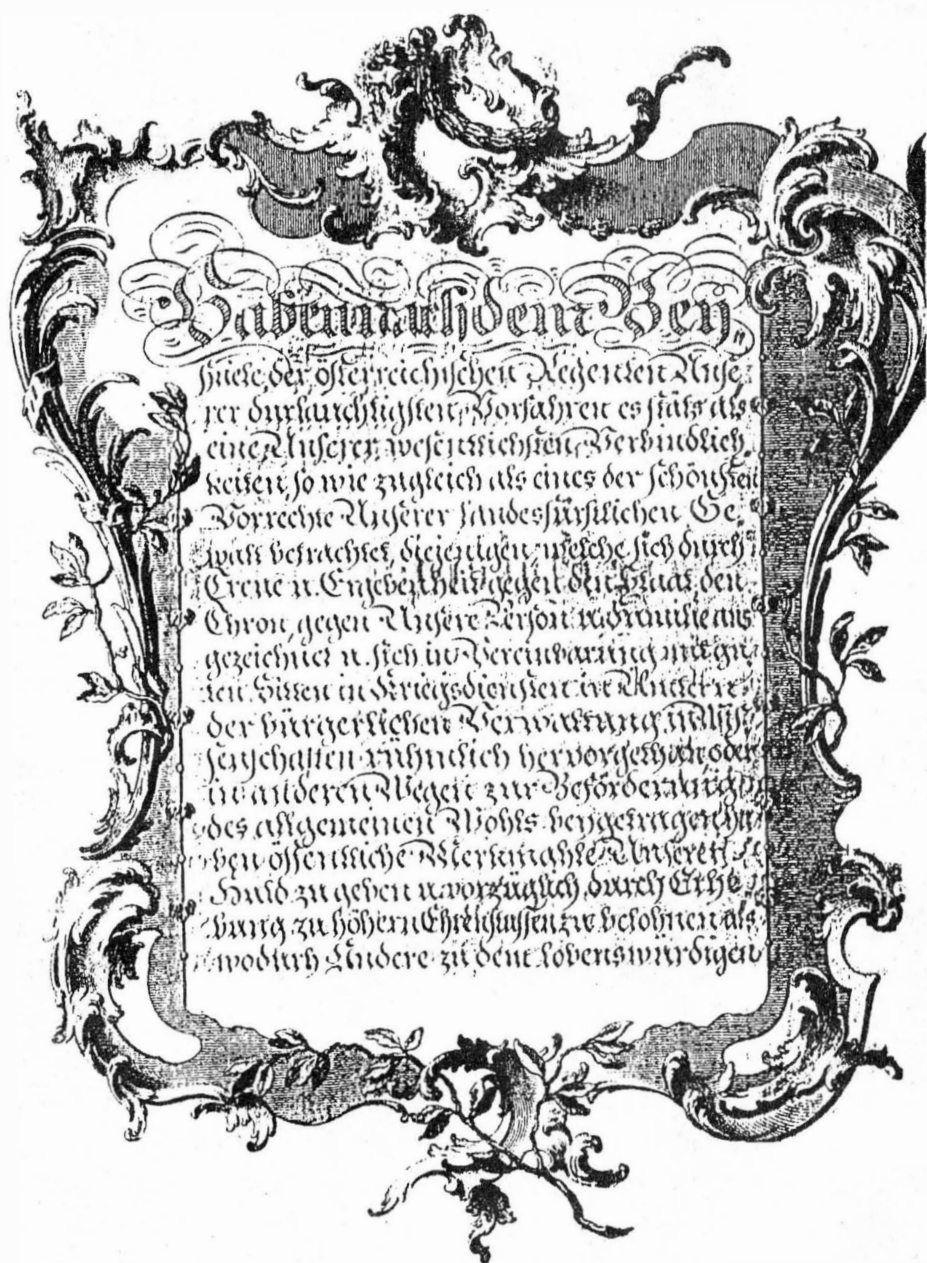 Haben nach dem Bey
spiele, der österreichischen Regenten Unse-
rer durlauchtigsten Vorfahren es stäts als
eine Unserer wesentlichsten Verbindlich
keiten, so wie zugleich als eines der schönsten
Vorrechte Unserer landesfürstlichen Ge-
walt betrachtet, diejenigen, welche sich durch
Treue u. Ergebenheit gegen den Staat, den
Thron, gegen Unsere Person u. Familie aus
gezeichnet u. sich in Vereinbarung mit gu-
ten Sitten in Kriegsdiensten in Ämtern
der bürgerlichen Verwaltung in Wis-
senschaften rühmlich hervorgethan oder
in anderen Wegen zur Beförderung
des allgemeinen Wohls beygetragen ha-
ben öffentliche Merkmahle Unserer
Huld zu geben u. vorzüglich durch Erhe-
bung zu höhern Ehrenstuffen zu belohnen als
wodurch Andere zu dem lobenswürdigen